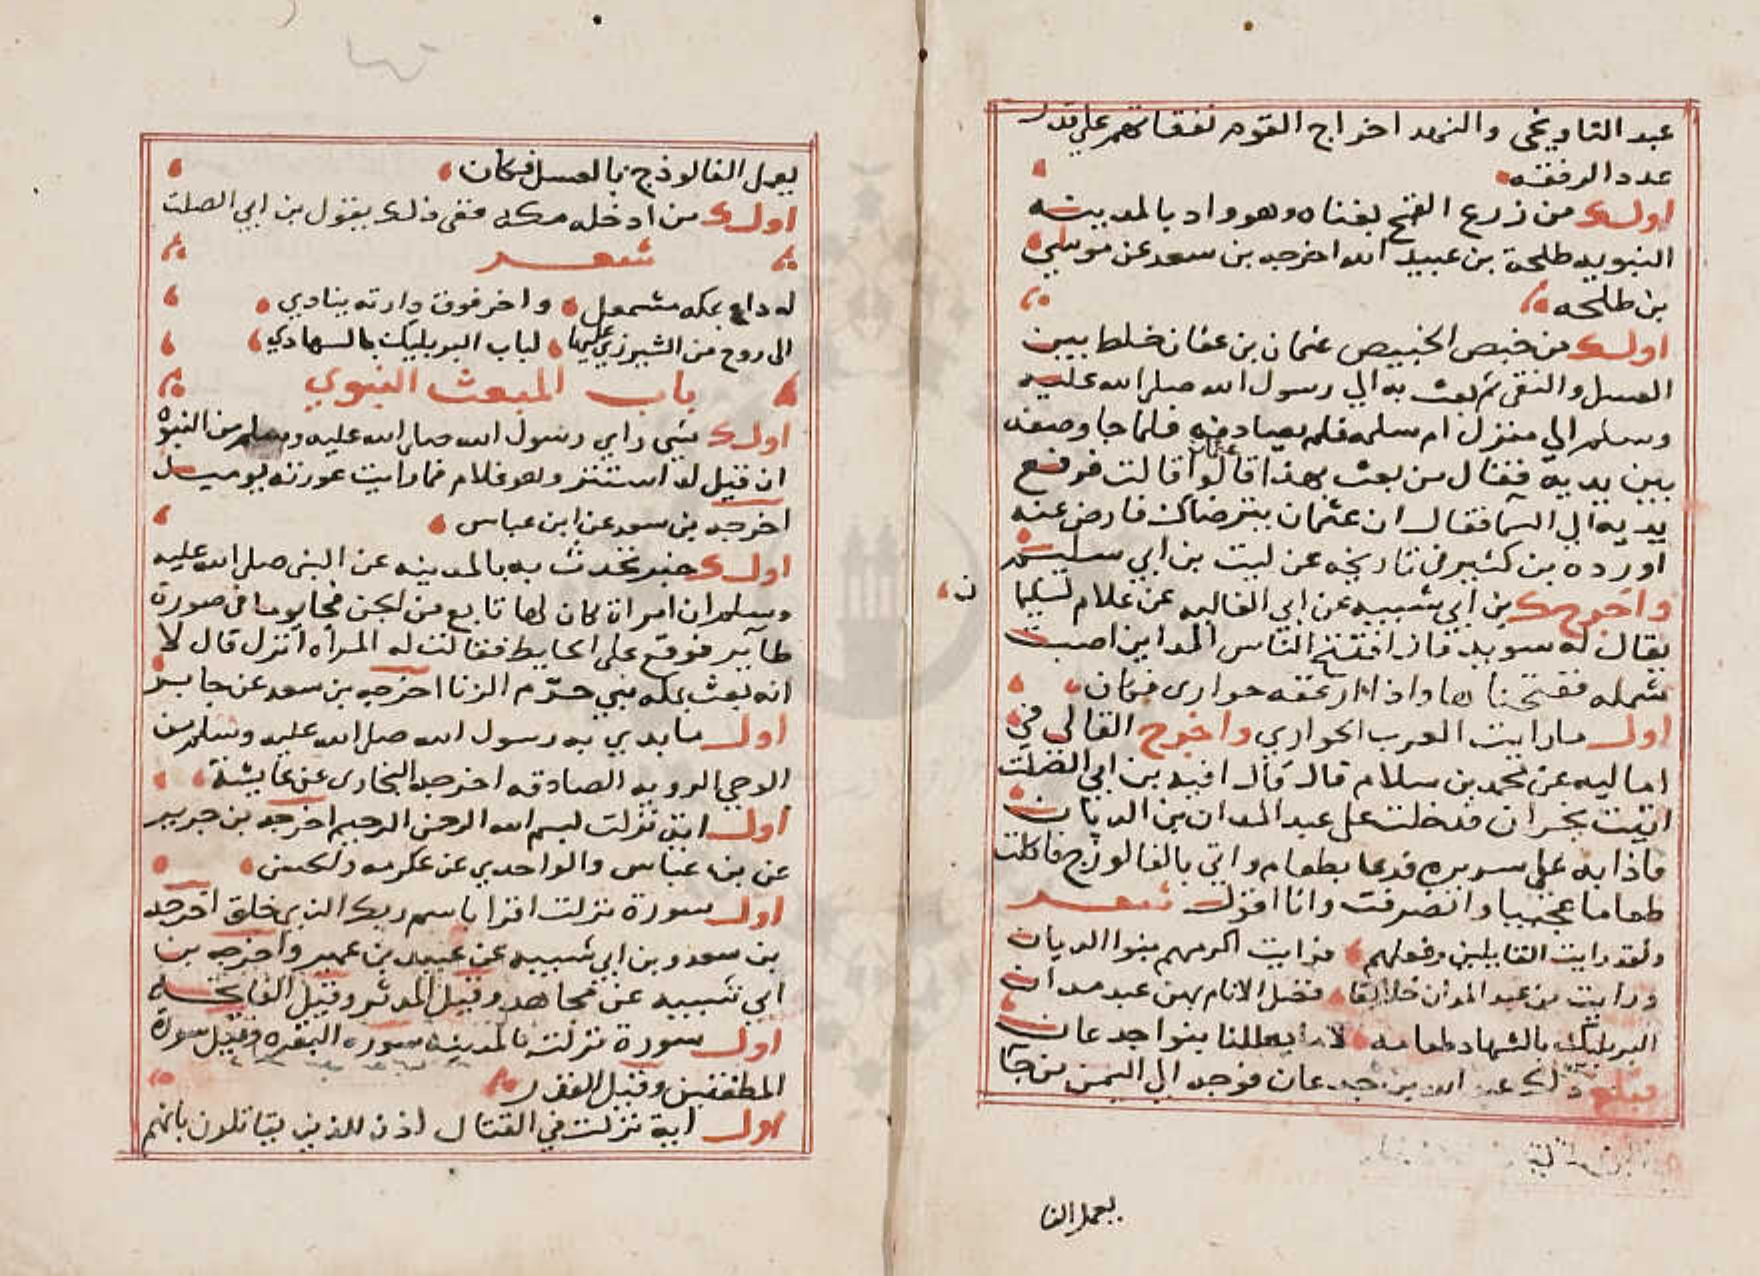 عبد التاريخي والنهد اخراج القوم نفقاتهم علي قدر
عدد الرفقه
اول من زرع القمح بقناه وهو واد بالمدينه
النبويه طلحة بن عبيد الله اخرجه بن سعد عن موسي
بن طلحه
اول من خبص الخبيص عثمان بن عفان خلط بين
العسل والنقي ثم بعث به الي رسول الله صلى الله عليه
وسلم الي منزل ام سلمه فلم يصادفه فلما جا وضعته
بين يديه فقال من بعث بهذا قالوا عثمان قالت فرفع
يديه الي السما فقال ان عثمان يترضاك فارض عنه
اورده بن كثير في تاريخه عن ليث بن ابي سليم
واخرج بن ابي شيبه عن ابي العاليه عن غلام لسليما
ن
يقال له سويد قال افتتح الناس المداين اصبت
سمله ففتحناها واذا ارغفه حواري فكان
اول ما رايت العرب الحواري واخرج القالي في
اماليه عن محمد بن سلام قال قال اميه بن ابي الصلت
اتيت نجران فدخلت على عبد المدان بن الديان
فاذا به علي سريره فدعا بطعام واتي بالفالوذج فاكلت
طعاما عجيبا وانصرفت وانا اقول شعر
ولقد رايت القايلين وفعلهم فرايت اكرمهم بنوا الديان
ورايت من عبد المدان خلايقا فضل الانام بهن عبد مدان
البر يلبك بالشهاد طعامه لا ما يعللنا بنوا جدعان
فبلغ ذلك عبد الله بن جدعان فوجه الي اليمن من جا
يعمل الفا
يعمل الفالوذج بالعسل فكان
اول من ادخله مكه ففي ذلك يقول بن ابي الصلت
شعر
له داع بمكه مشمعل واخر فوق دارته ينادي
الي روح من الشيزي عليها لباب البر يلبك بالشهادي
باب المبعث النبوي
اول شي راي رسول الله صلى الله عليه وسلم من النبوة
ان قيل له استتر وهو غلام فما رايت عورته يوميذ
اخرجه بن سعد عن ابن عباس
اول خبر تحدث به بالمدينه عن النبي صلى الله عليه
وسلم ان امراة كان لها تابع من الجن فجا يوما في صورة
طاير فوقع على الحايط فقالت له المراه انزل قال لا
انه بعث بمكه نبي حرّم الزنا اخرجه بن سعد عن جابر
اول ما بدي به رسول الله صلى الله عليه وسلم من
الوحي الرويه الصادقه اخرجه البخاري عن عايشة
اول اية نزلت بسم الله الرحمن الرحيم اخرجه بن جرير
عن بن عباس والواحدي عن عكرمه والحسن
اول سورة نزلت اقرا باسم ربك الذي خلق اخرجه
بن سعد وبن ابي شيبه عن عبيد بن عمير واخرجه بن
ابي شيبه عن مجاهد وقيل المدثر وقيل الفاتحه
اول سورة نزلت بالمدينه سوره البقره وقيل سورة
المطففين وقيل القدر
اول اية نزلت في القتال اذن للذين يقاتلون بانهم